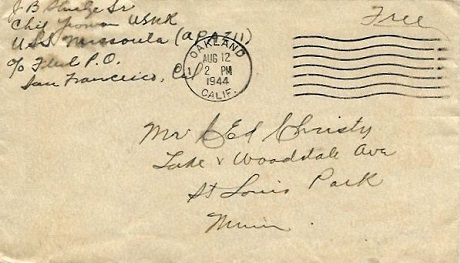 J B
Chf Yeoman USNR
USS Missoula (APA 211)
c/o Fleet P.O.
San Francisco, Cal
Free
OAKLAND
AUG 12
2 PM
1944
CALIF.
1
Mr Ed Christy
Lake & Wooddale Ave
St Louis Park
Minn.